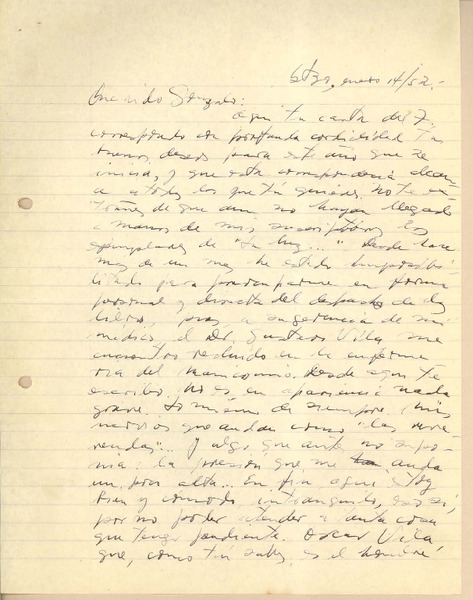 enero 14/52.-
Querido Gonzalo:
Aquí tu carta del 7.
Correspondo con profunda cordialidad tus
buenos deseos para este año que se
inicia, y que esta correspondencia alcance
a todos los que tú quieres. No te ex-
trañes de que aun no hayan llegado
a manos de mis suscriptores los
ejemplares de "La luz..." Desde hace
más de un mes he estado imposibi-
litado para preocuparme en forma
personal y directa del despacho de
libro, pues a sugerencia de mi
médico el Dr Gustavo Vila me
encuentro recluido en la enferme
ría del Manicomio. Desde aquí te
escribo. No es en apariencia nada
grave. Lo mismo de siempre. Mis
nervios que andan como "las
... Y algo que antes no supo-
nía: la presión que me anda
un poco alta... En fin, aquí estoy
bien y cómodo, intranquilo, eso sí,
por no poder atender a tanta cosa
que tengo pendiente. Oscar Vila
que, como tú sabes, es el hombre